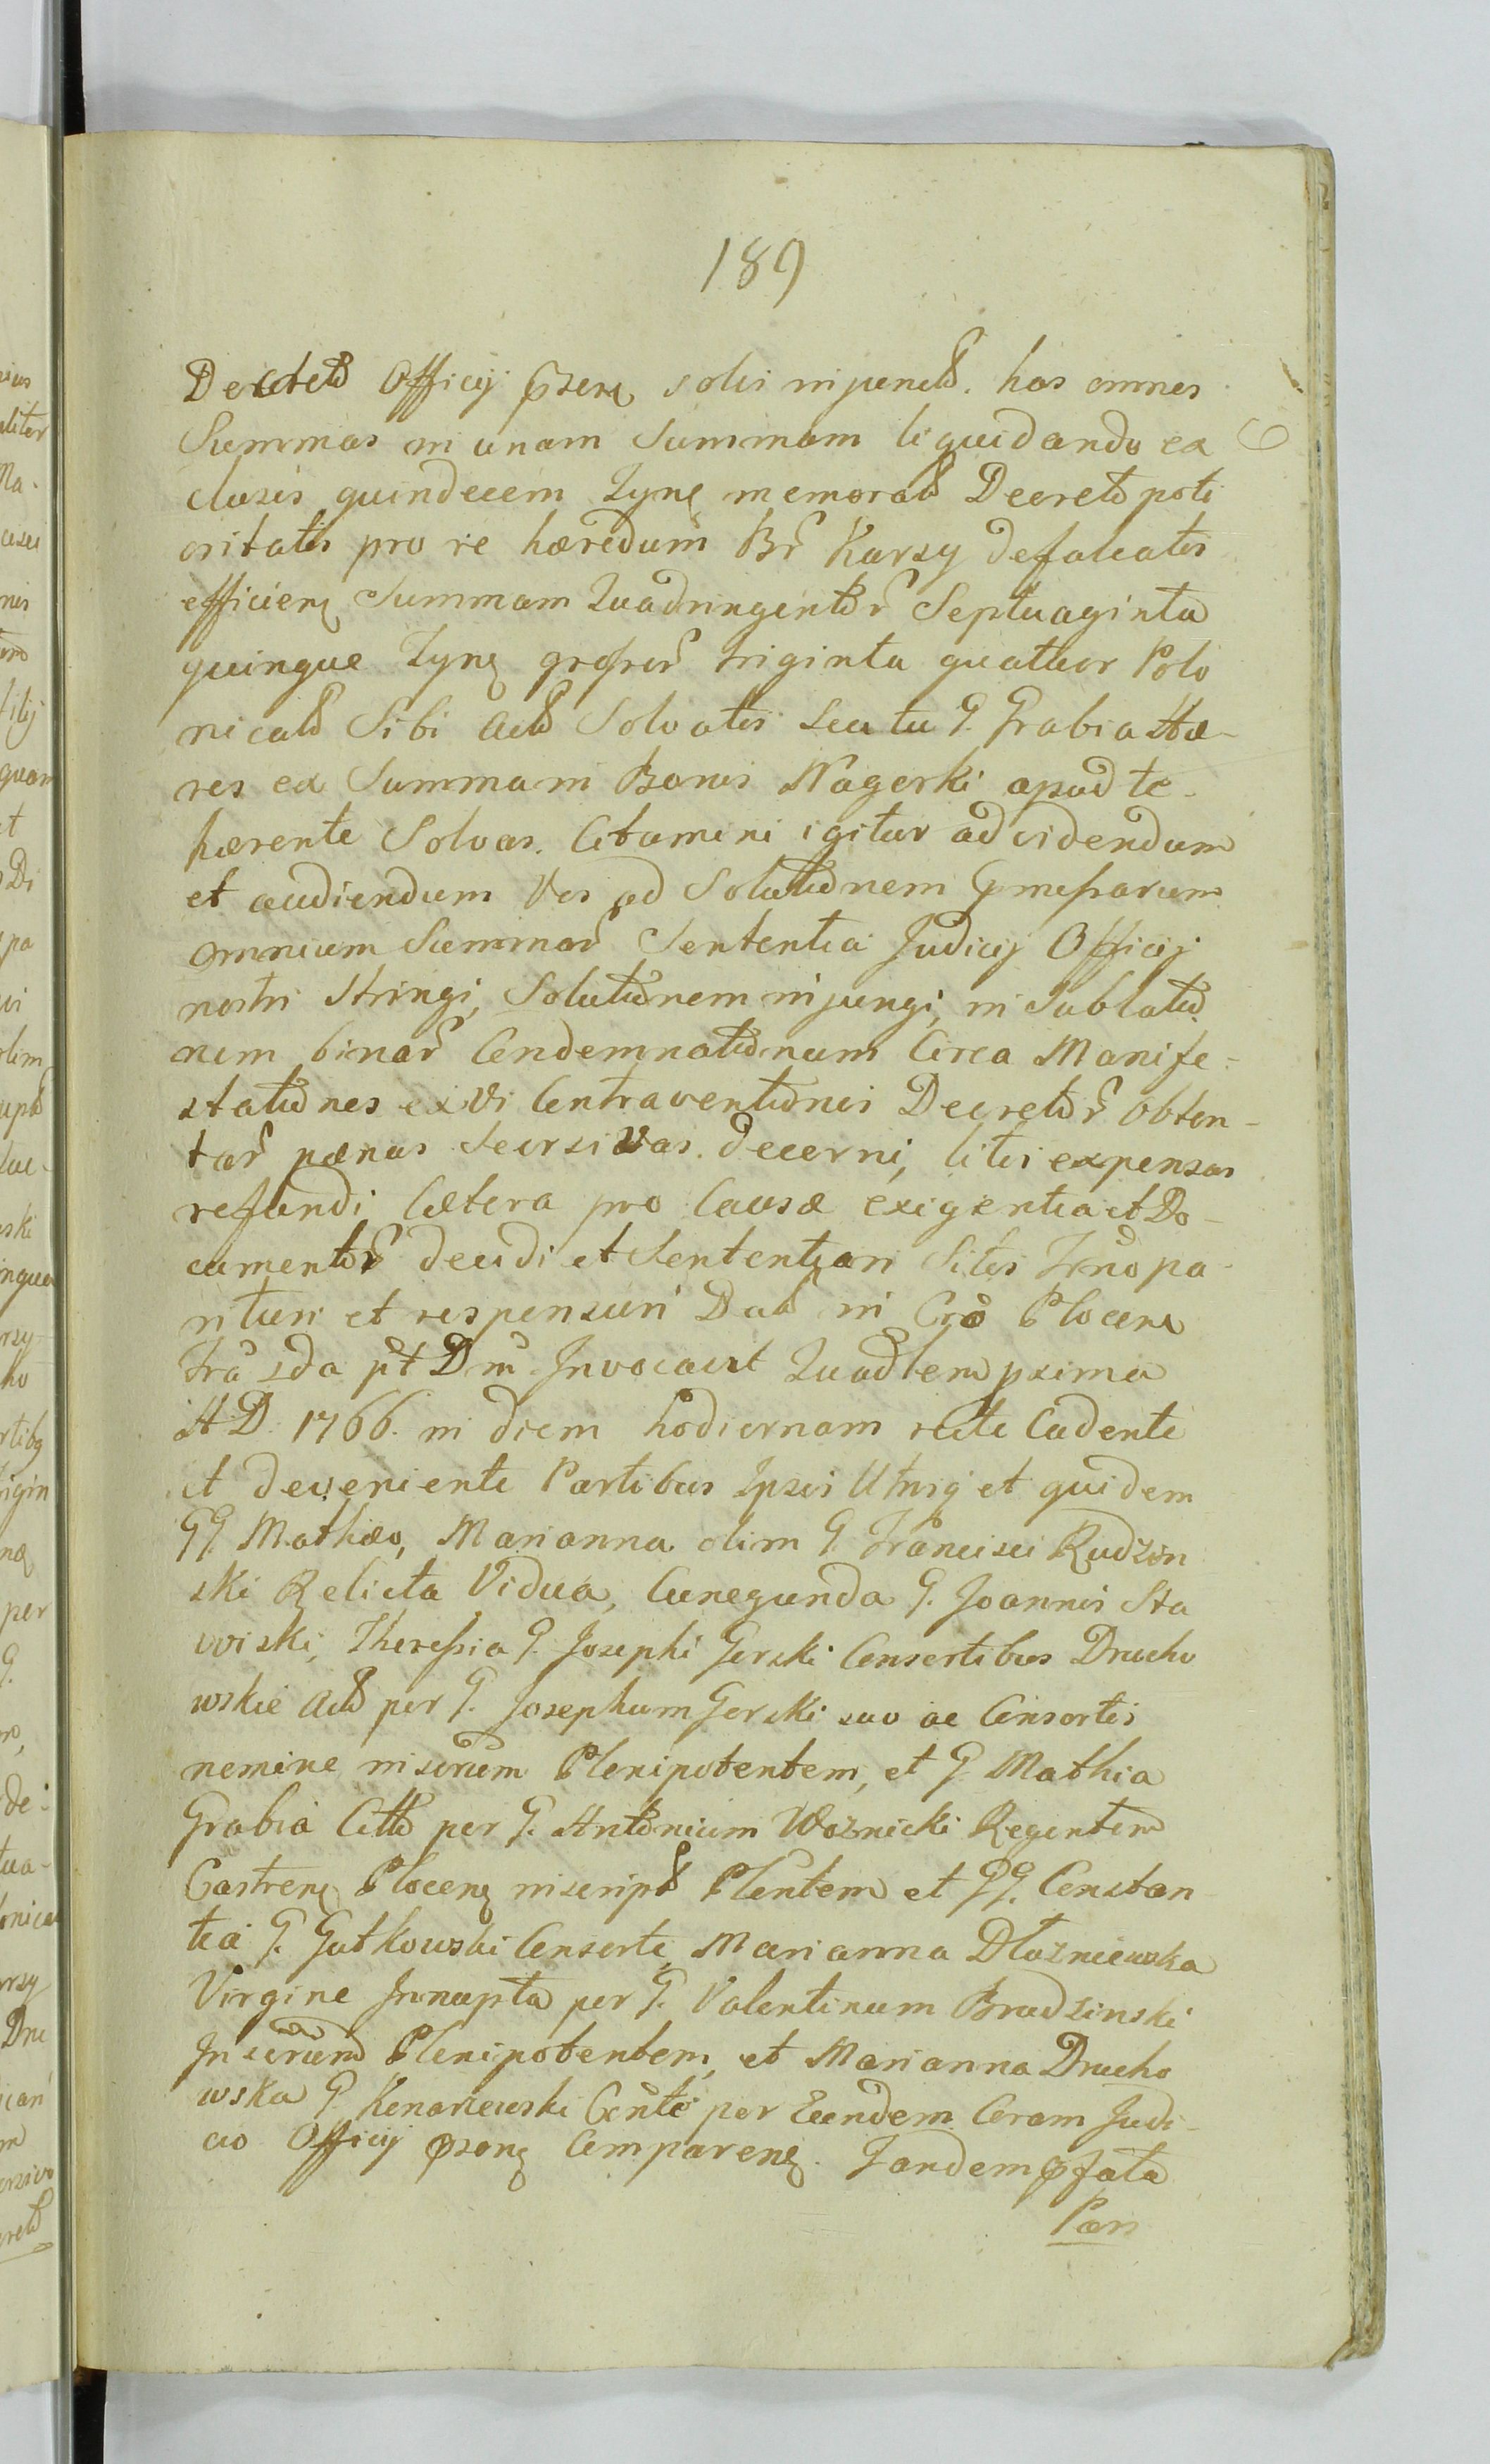 189
Decreto Officij psens solvi injuncto. has omnes
Summas in unam Summam liquidando ex
clusis quindecem Tyns memorato Decreto poti
oritatis pro re hæredum Br Karsy defalcatis
efficiens Summam Quadringentor Septuaginta
quinque Tyns grossor triginta quatuor Polo
nicals Sibi Acto Solvatis Seu tu G. Grabia Hæ-
res ex Summa in Bonis Nagorki apud te
hærente Solvas. Citamini igitur ad videndum
et audiendum Vos ad Solutionem pmissarum
omnium Summar Sententia Judicij Officij
nostri Stringi, Solutionem injungi, in Sublatio
nem binar Condemnationum Circa Manife-
stationes ex vi Contraventionis Decretor obten-
tar pænas Seorsivas decerni, litis expensas
refundi Cætera pro Causæ exigentia et Do-
cumentor decidi et Sententiari Sitis Trno pa-
rituri et responsuri Dat in Cro Plocen
fra 2da pt Dm Invocavit Quadlem pxima
A D. 1766. in diem hodiernam recte Cadente
et deveniente Partibus Ipsis Utrisq et quidem
GG. Mathæo, Marianna olim G. Francisci Rudzin
ski Relicta Vidua, Cunegunda G. Joannis Sta
wiski, Theressia G. Josephi Gorski Consortibus Drucho
wskie Acto per G. Josephum Gorski suo ac Consortis
nomine inserum Plenipotentem, et G. Mathia
Grabia Citto per G. Antonium Woznicki Regentem
Castrens Plocens inscript Plentem et GG. Constan
tia G. Gutkowski Consorte, Marianna Dłozniewska
Virgine Innupta per G. Valentinum Brudzinski
Inserum Plenipotentem, et Marianna Drucho
wska G. Konarzewski Conte per Eundem Coram Judi-
cio Officij psong Comparens. Tandem pfata
Pars